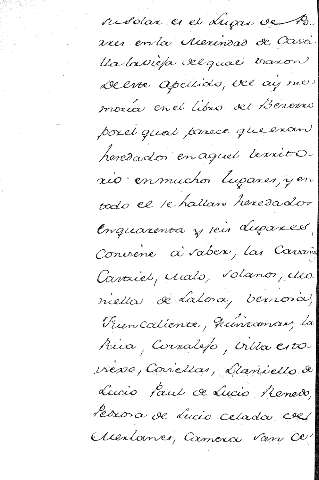 su solar es el Lugar de
res en la Merindad de Casti
lla la vieja del qual usaron
de este Apellido, de ay me
moria en el libro del Bezerro
por el qual parece que eran
heredados en aquel territo
rio en muchos lugares, y en
todo él se hallan heredados
en quarenta y seis Lugares,
conviene à saber, las
Castriel, Malo, Solanos,
niella de Lalora,
Funcaliente, la
Riia, Corralejo, Villa esco
viexo, Coviellas, Llaniello de
Lucio Paul de Lucio Renedo,
Pedrosa de Lucio celada de